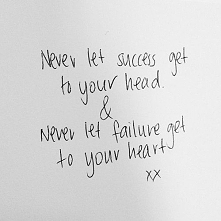 Never let success get
to your head.
&
Never let failure get
to your heart
xx